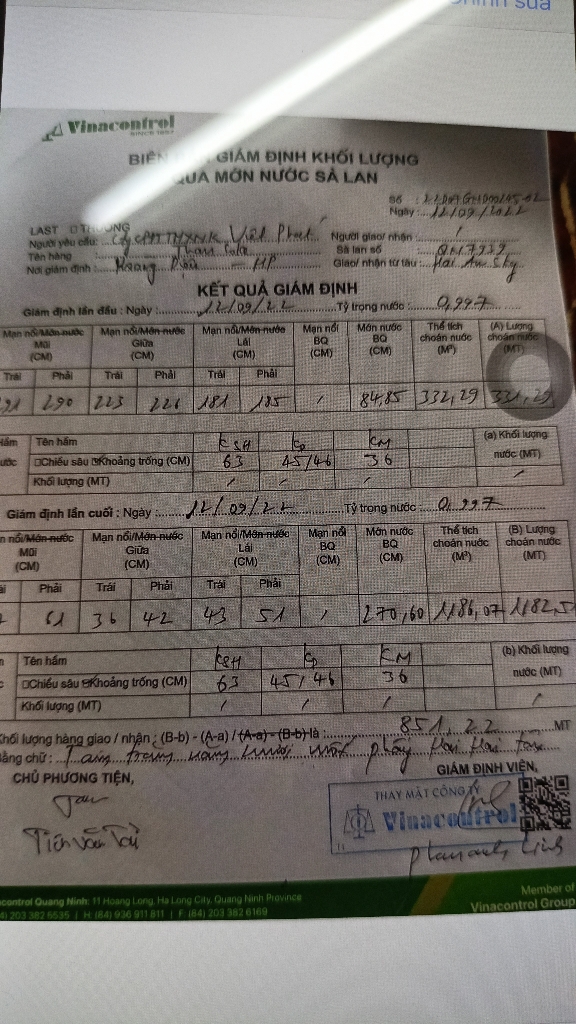 sửa
Vinacontrol
BIÊN GIÁM ĐỊNH KHỐI LƯỢNG
QUA MỚN NƯỚC SÀ LAN
Số :
Ngày: 12/09/2022
LAST
Người yêu cầu: Cty CPTM XNK Việt Phát Người giao/ nhận : /
Tên hàng Than Sà lan số
Nơi giám định : Hoàng Diệu - HP Giao/ nhận từ tàu : Hai An Sky
KẾT QUẢ GIÁM ĐỊNH
Giám định lần đầu : Ngày : 12/09/22 Tỷ trọng nước : 0,997
Mạn nổi/Mớn nước Mũi (CM) Mạn nổi/Mớn nước Giữa (CM) Mạn nổi/Mớn nước Lái (CM) Mạn nổi BQ (CM) Mớn nước BQ (CM) Thể tích choán nước (M³) (A) Lượng choán nước (MT)
Trái Phải Trái Phải Trái Phải
291 290 223 226 181 185 / 84,85 332,29 331,29
Tên hầm KSH KP KM (a) Khối lượng nước (MT)
Chiều sâu Khoảng trống (CM) 63 45/46 36
Khối lượng (MT) / / / /
Giám định lần cuối : Ngày : 12/09/22 Tỷ trọng nước : 0,997
n nổi/Mớn nước Mũi (CM) Mạn nổi/Mớn nước Giữa (CM) Mạn nổi/Mớn nước Lái (CM) Mạn nổi BQ (CM) Mớn nước BQ (CM) Thể tích choán nước (M³) (B) Lượng choán nước (MT)
ái Phải Trái Phải Trái Phải
61 36 42 43 51 / 270,60 1186,07 1182,51
Tên hầm KSH KP KM (b) Khối lượng nước (MT)
Chiều sâu Khoảng trống (CM) 63 45/46 36
Khối lượng (MT) / / / /
Khối lượng hàng giao / nhận : (B-b) - (A-a) / (A-a) - (B-b) là : 851,22 MT
Bằng chữ : Tám trăm năm mươi mốt phẩy Hai Hai tấn
CHỦ PHƯƠNG TIỆN, GIÁM ĐỊNH VIÊN,
THAY MẶT CÔNG TY
Vinacontrol
Tiến Văn Tài
Phan anh Linh
acontrol Quang Ninh: 11 Hoang Long, Ha Long City, Quang Ninh Province
4) 203 382 6535 | H: (84) 936 911 811 | F: (84) 203 382 6169
Member of
Vinacontrol Group